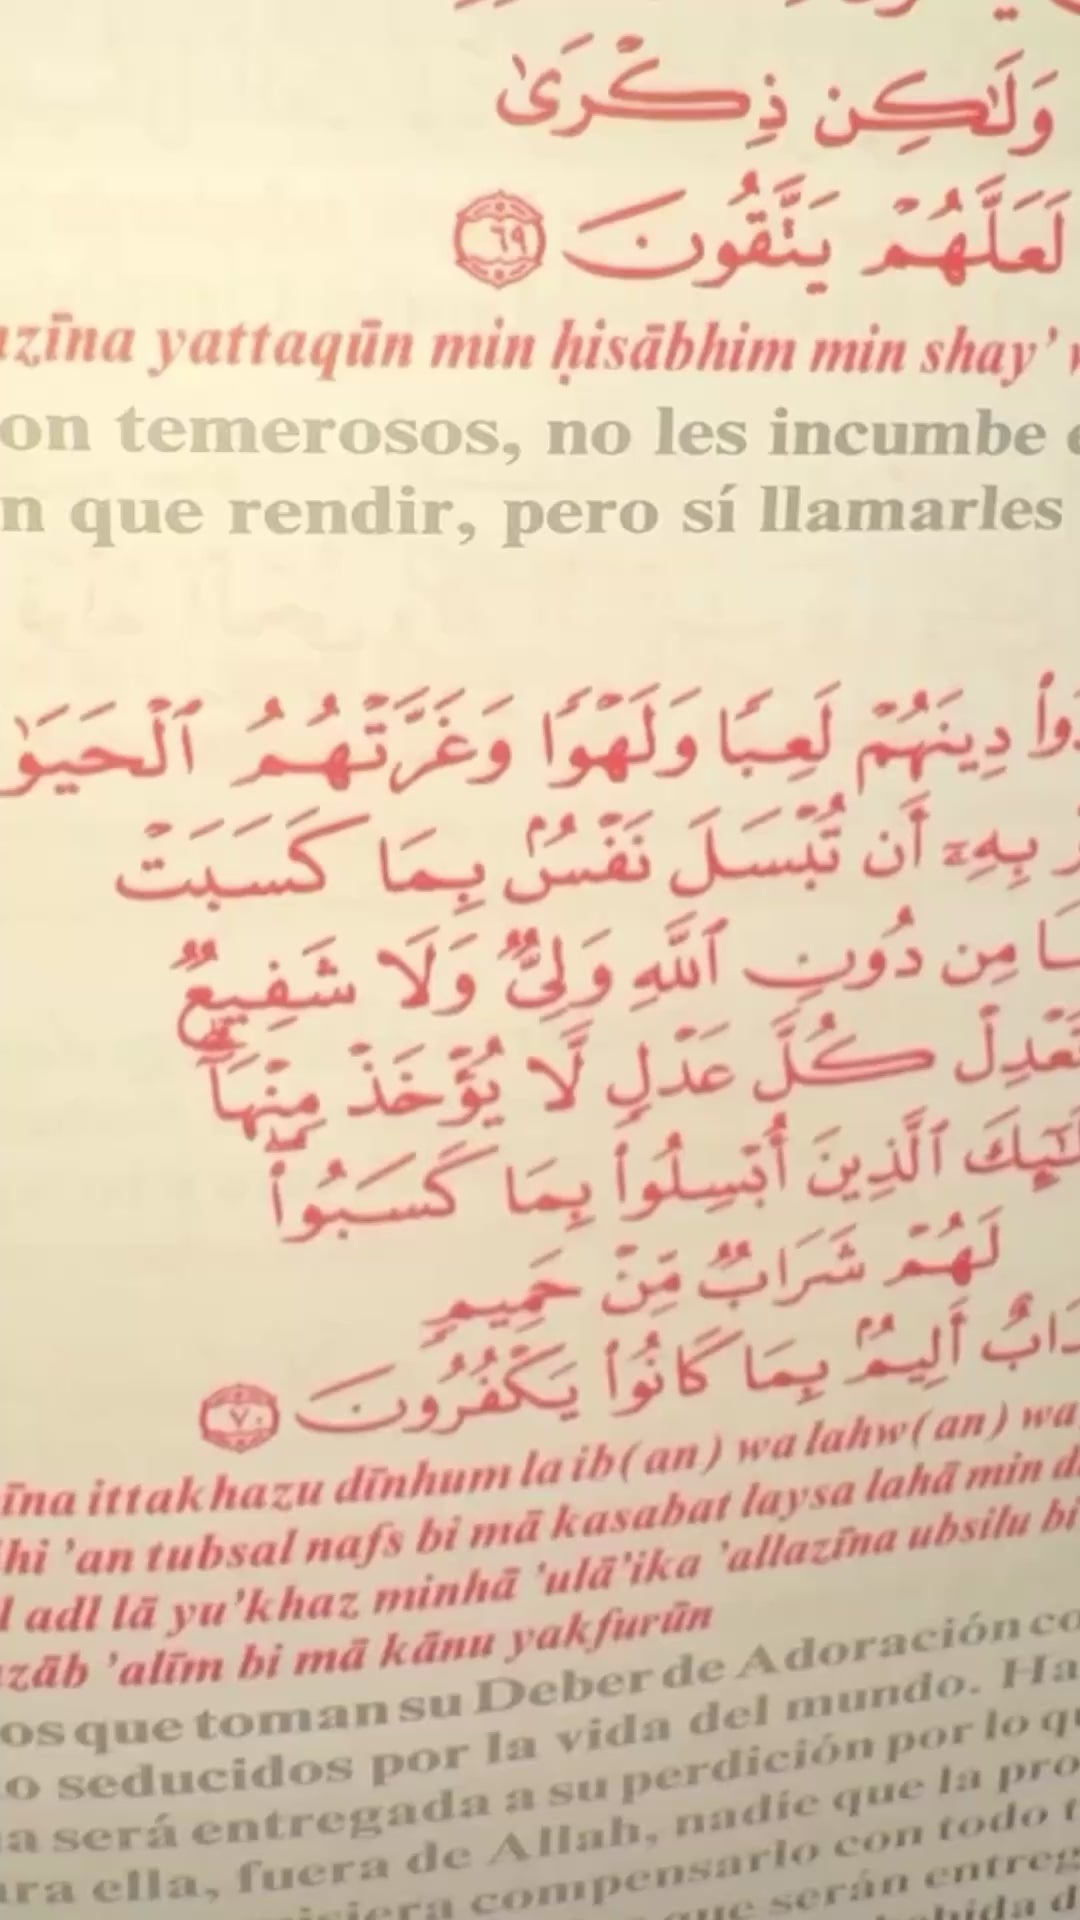 وَلَٰكِن ذِكْرَىٰ
لَعَلَّهُمْ يَتَّقُونَ ٦٩
zīna yattaqūn min ḥisābhim min shay’
on temerosos, no les incumbe
n que rendir, pero sí llamarles
دِينَهُمْ لَعِبًا وَلَهْوًا وَغَرَّتْهُمُ ٱلْحَيَوٰ
بِهِۦٓ أَن تُبْسَلَ نَفْسٌۢ بِمَا كَسَبَتْ
مِن دُونِ ٱللَّهِ وَلِىٌّ وَلَا شَفِيعٌ
تَعْدِلْ كُلَّ عَدْلٍ لَّا يُؤْخَذْ مِنْهَآ ۗ
ٱلَّذِينَ أُبْسِلُوا۟ بِمَا كَسَبُوا۟ ۖ
لَهُمْ شَرَابٌ مِّنْ حَمِيمٍ
أَلِيمٌۢ بِمَا كَانُوا۟ يَكْفُرُونَ ٧٠
īna ittakhazu dīnhum laib(an) wa lahw(an) wa
hi ’an tubsal nafs bi mā kasabat laysa lahā min d
l adl lā yu’khaz minhā ’ulā’ika ’allazīna ubsilu bi
zāb ’alīm bi mā kānu yakfurūn
os que toman su Deber de Adoración co
o seducidos por la vida del mundo. Ha
a será entregada a su perdición por lo qu
ra ella, fuera de Allah, nadie que la pro
compensarlo con todo t
que serán entreg